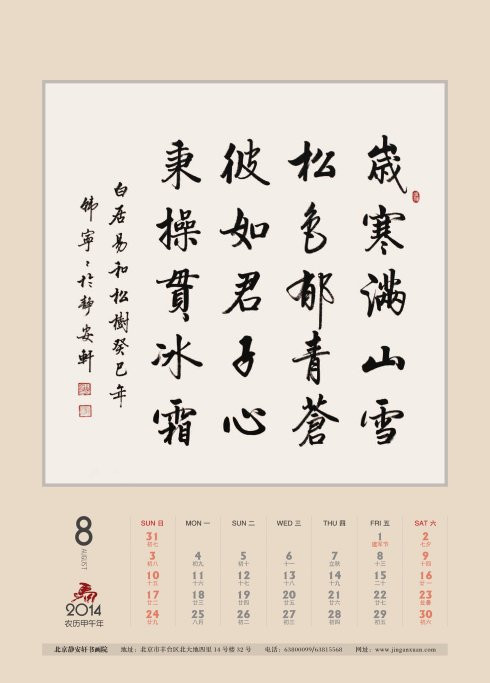 歳寒滿山雪
松色郁青蒼
彼如君子心
秉操貫冰霜
白居易和松樹癸巳年
韩寧々於靜安軒
8
AUGUST
2014
农历甲午年
SUN 日 MON 一 SUN 二 WED 三 THU 四 FRI 五 SAT 六
31 1 2
初七 建军节 七夕
3 4 5 6 7 8 9
初八 初九 初十 十一 立秋 十三 十四
10 11 12 13 14 15 16
十五 十六 十七 十八 十九 二十 廿一
17 18 19 20 21 22 23
廿二 廿三 廿四 廿五 廿六 廿七 处暑
24 25 26 27 28 29 30
廿九 八月 初二 初三 初四 初五 初六
北京静安轩书画院 地址：北京市丰台区北大地四里14号楼32号 电话：63800099/63815568 网址：www.jinganxuan.com